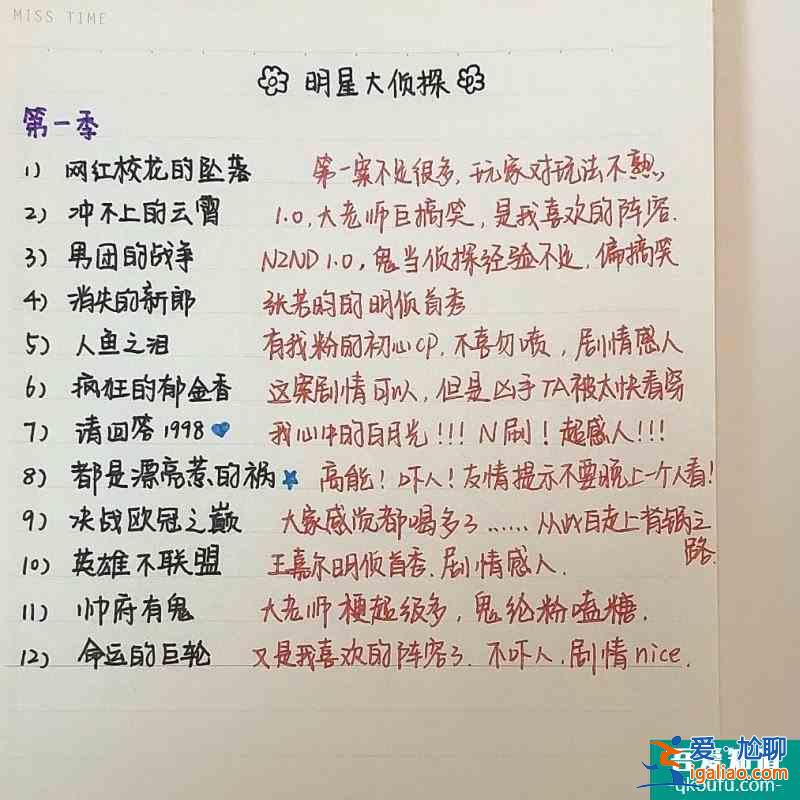 MISS TIME
明星大侦探
第一季
1) 网红校花的坠落 第一案不足很多,玩家对玩法不熟。
2) 冲不上的云霄 1.0,大老师巨搞笑,是我喜欢的阵容.
3) 男团的战争 NZND 1.0,鬼当侦探经验不足,偏搞笑
4) 消失的新郎 张若昀的明侦首秀
5) 人鱼之泪 有我粉的初心CP,不喜勿喷,剧情感人
6) 疯狂的郁金香 这案剧情可以,但是凶手TA被太快看穿
7) 请回答1998 我心中的白月光!!! N刷!超感人!!!
8) 都是漂亮惹的祸 高能!吓人!友情提示不要晚上一个人看!
9) 决战欧冠之巅 大家感觉都喝多了...... 从此白走上背锅之
路.
10) 英雄不联盟 王嘉尔明侦首秀.剧情感人.
11) 帅府有鬼 大老师梗超级多,鬼纶粉嗑糖.
12) 命运的巨轮 又是我喜欢的阵容了.不吓人.剧情nice.
爱·尬聊
igaliao.com
-qk5ufu.com-